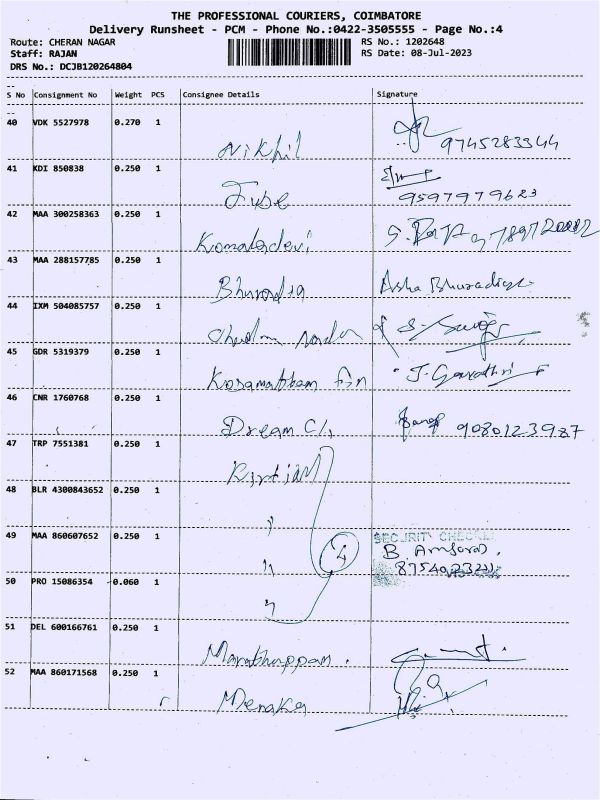 THE PROFESSIONAL COURIERS, COIMBATORE
Delivery Runsheet - PCM - Phone No.:0422-3505555 - Page No.:4
Route: CHERAN NAGAR RS No.: 1202648
Staff: RAJAN RS Date: 08-Jul-2023
DRS No.: DCJB120264804
S No Consignment No Weight PCS Consignee Details Signature
40 VDK 5527978 0.270 1
Nikhil 9745283344
41 KDI 850838 0.250 1
9597979623
42 MAA 300258363 0.250 1
Komaladevi
43 MAA 288157785 0.250 1
Asha
44 IXM 504085757 0.250 1
45 GDR 5319379 0.250 1
J. Gayathri
46 CNR 1760768 0.250 1
Dream 9080123987
47 TRP 7551381 0.250 1
48 BLR 4300843652 0.250 1
49 MAA 860607652 0.250 1
4 SECURITY CHECKED
B.
50 PRO 15086354 0.060 1
51 DEL 600166761 0.250 1
52 MAA 860171568 0.250 1
Menaka